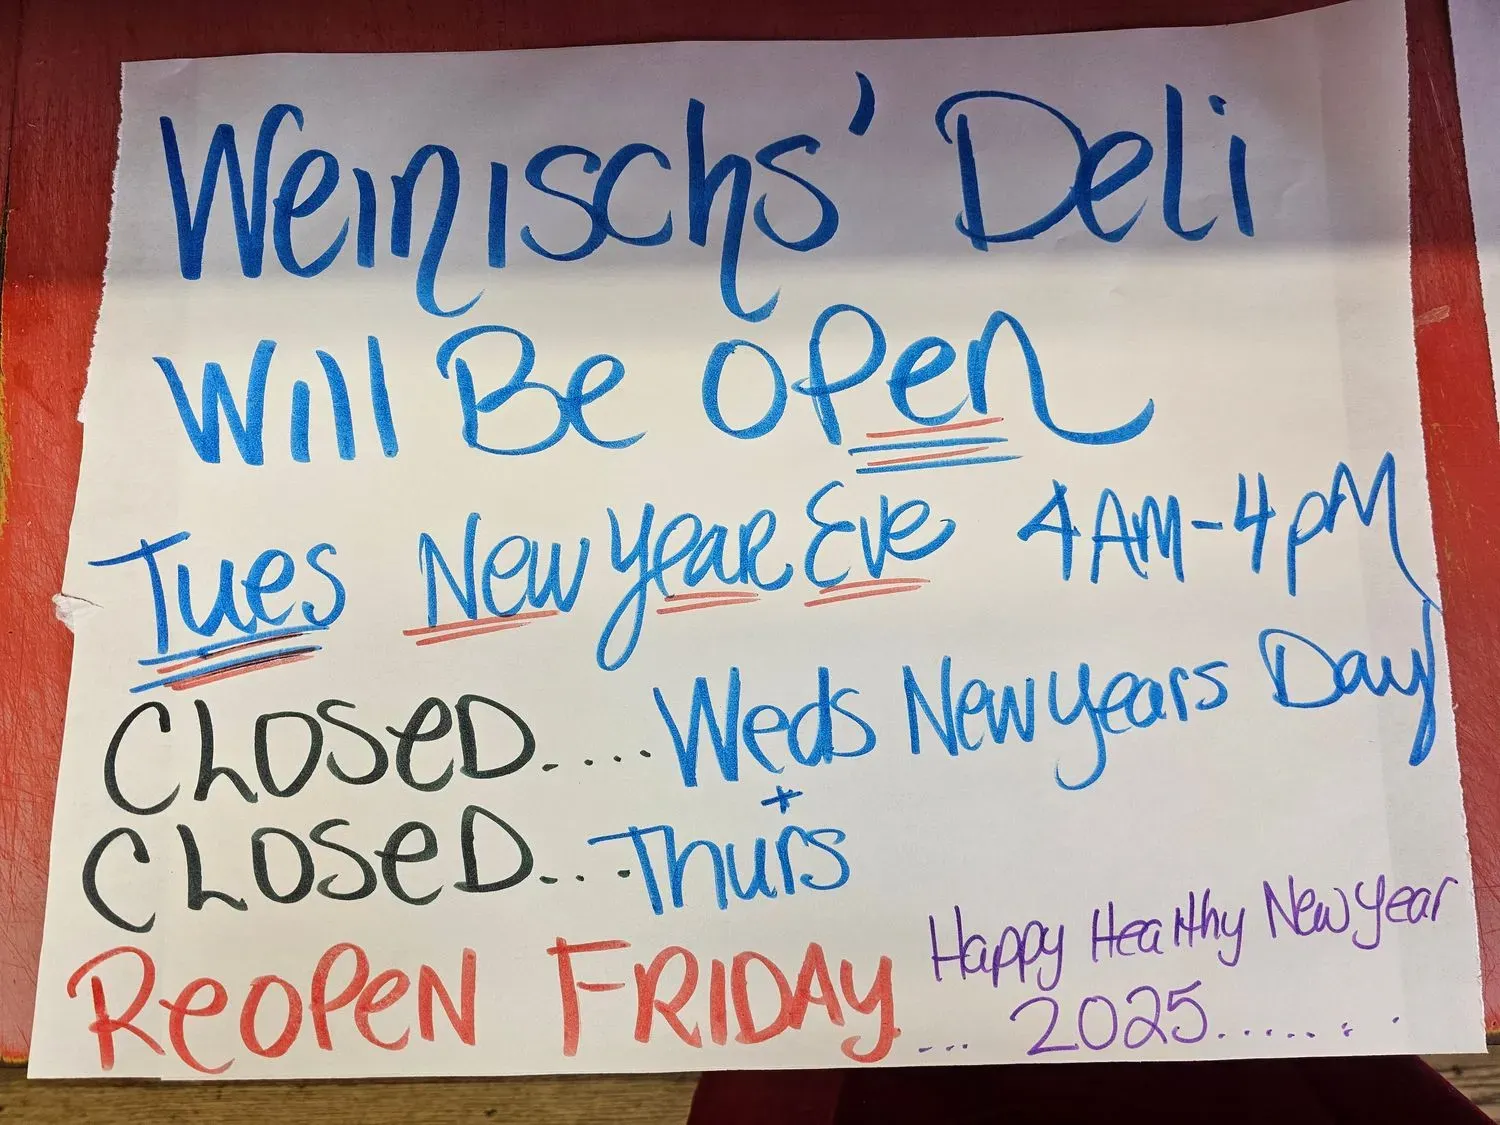 Weinischs' Deli
Will Be Open
Tues New Year Eve 4AM-4pM
CLOSeD.... Weds New Years Day
+
CLOSeD... Thurs
ReOPeN FRIDAY...
Happy Healthy New Year
2025.......